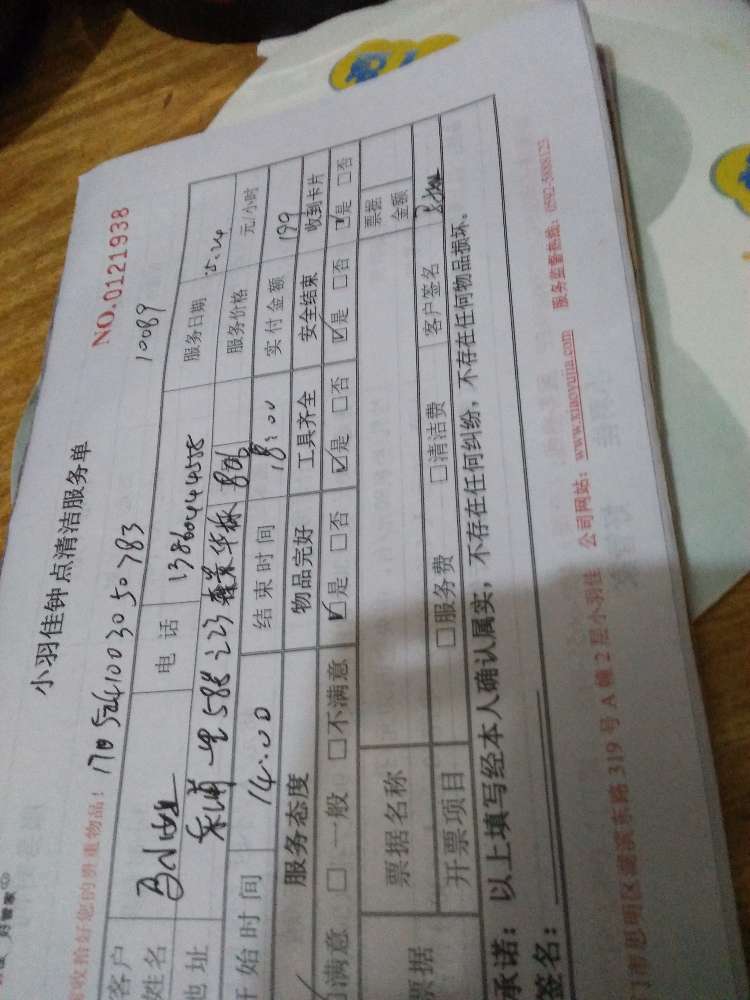 好管家
小羽佳钟点清洁服务单
NO.0121938
收拾好您的贵重物品! 1705241003050783 10089
客户姓名 电话 13860444588 服务日期 5.24
地址 588 之 23 806 服务价格 元/小时
开始时间 14:00 结束时间 18:00 实付金额 199
服务态度 物品完好 工具齐全 安全结束 收到卡片
满意 □一般 □不满意 ☑是 □否 ☑是 □否 ☑是 □否 ☑是 □否
票据 票据名称 票据金额
开票项目 □服务费 □清洁费 客户签名
承诺: 以上填写经本人确认属实, 不存在任何纠纷, 不存在任何物品损坏。
签名:
门市思明区湖滨东路 319 号 A 幢 2 层小羽佳 公司网站: www.xiaoyujia.com 服务监督电话: 0592-5888123